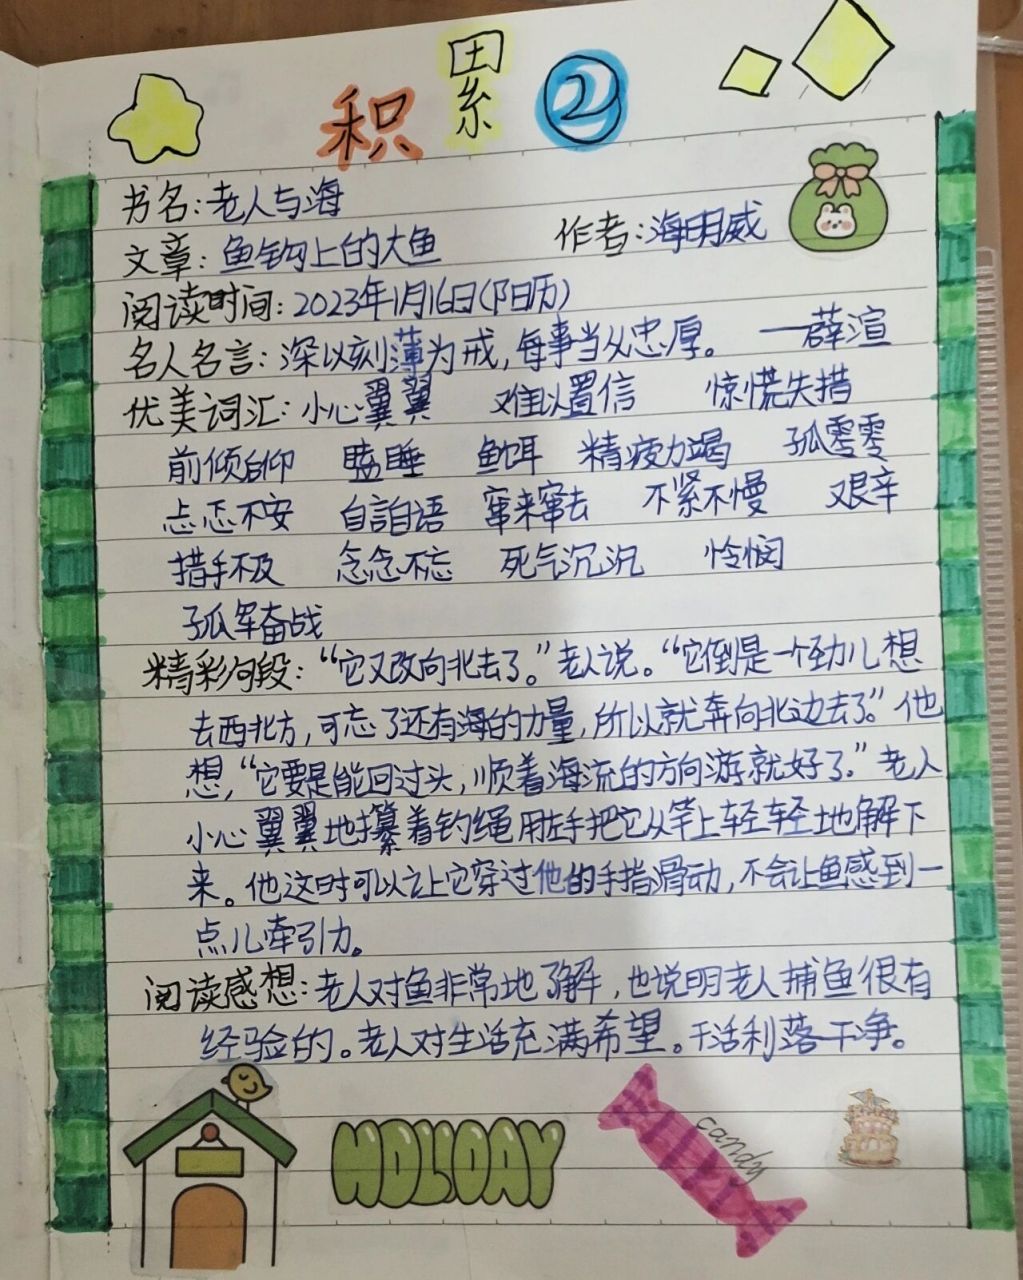 积累②
书名：老人与海
文章：鱼钩上的大鱼 作者：海明威
阅读时间：2023年1月16日（阳历）
名人名言：深以刻薄为戒，每事当从忠厚。 ——薛渲
优美词汇：小心翼翼 难以置信 惊慌失措
前倾后仰 瞌睡 鱼饵 精疲力竭 孤零零
忐忑不安 自言自语 窜来窜去 不紧不慢 艰辛
措手不及 念念不忘 死气沉沉 怜悯
孤军奋战
精彩句段：“它又改向北去了。”老人说。“它倒是一个劲儿想
去西北方，可忘了还有海的力量，所以就奔向北边去了。”他
想，“它要是能回过头，顺着海流的方向游就好了。”老人
小心翼翼地攥着钓绳用左手把它从竿上轻轻地解下
来。他这时可以让它穿过他的手指滑动，不会让鱼感到一
点儿牵引力。
阅读感想：老人对鱼非常地了解，也说明老人捕鱼很有
经验的。老人对生活充满希望。干活利落干净。
HOLIDAY
candy